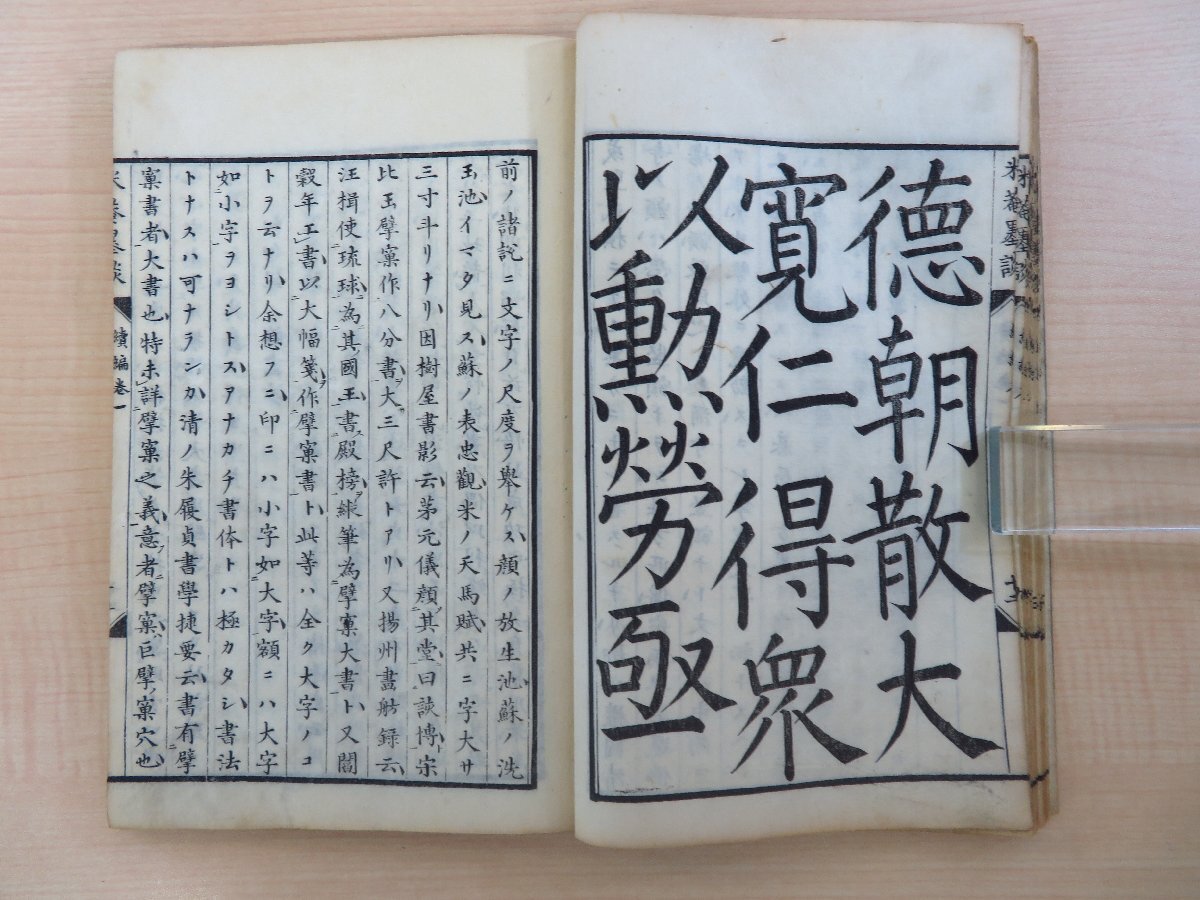 米菴墨談
德朝散大
寛仁得衆
以勲勞亟
前ノ諸説ニ文字ノ尺度ヲ舉ケス顔ノ放生池蘇ノ洗
玉池イマタ見ス蘇ノ表忠觀米ノ天馬賦共ニ字大サ
三寸斗リナリ因樹屋書影云茅元儀顔其堂曰談博宗
比玉擘窠作八分書大三尺許トアリ又揚州畫舫録云
汪楫使琉球為其國王書殿榜縱筆為擘窠大書ト又閻
穀年工書以大幅箋作擘窠書ト此等ハ全ク大字ノコ
トヲ云ナリ余想フニ印ニハ小字如大字額ニハ大字
如小字ヲヨシトスアナカチ書体トハ極カタシ書法
トナスハ可ナランカ清ノ朱履貞書學捷要云書有擘
窠書者大書也特未詳擘窠之義意者擘窠巨擘窠穴也
米菴墨談
續編卷一